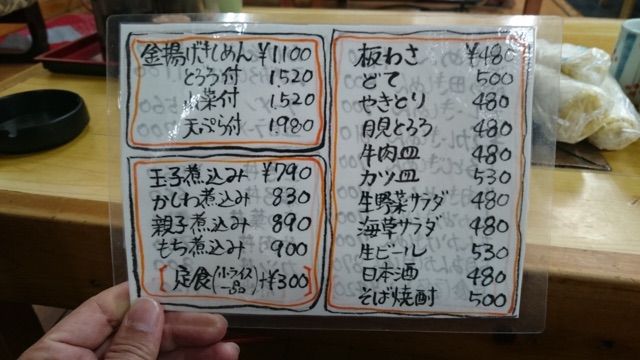 釜揚げきしめん ¥1,100
とろろ付 1,520
山菜付 1,520
天ぷら付 1,980
玉子煮込み ¥790
かしわ煮込み 830
親子煮込み 890
もち煮込み 900
[定食(小ライス 一品)+¥300]
板わさ ¥480
どて 500
やきとり 480
月見とろろ 480
牛肉皿 480
カツ皿 530
生野菜サラダ 480
海草サラダ 480
生ビール 530
日本酒 480
そば焼酎 500